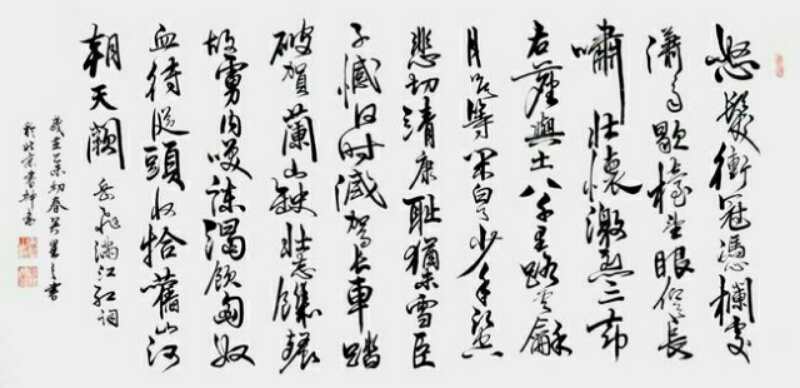 怒髮衝冠憑欄處
瀟雨歇擡望眼仰天長
嘯壯懷激烈三十功
名塵與土八千里路雲和
月莫等閒白了少年頭空
悲切靖康恥猶未雪臣
子憾何時滅駕長車踏
破賀蘭山缺壯志饑餐
胡虜肉笑談渴飲匈奴
血待從頭收拾舊山河
朝天闕 岳飛滿江紅詞
初春 書
於北京